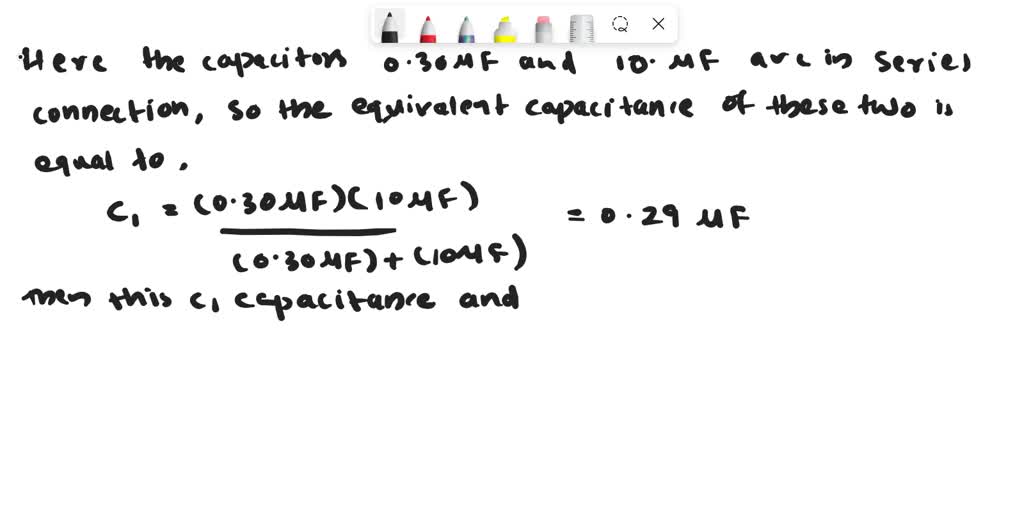 Here the capacitors 0.30 μF and 10. μF are in series
connection, so the equivalent capacitance of these two is
equal to.
C₁ = (0.30 μF)(10 μF) / (0.30 μF) + (10 μF) = 0.29 μF
then this C₁ capacitance and